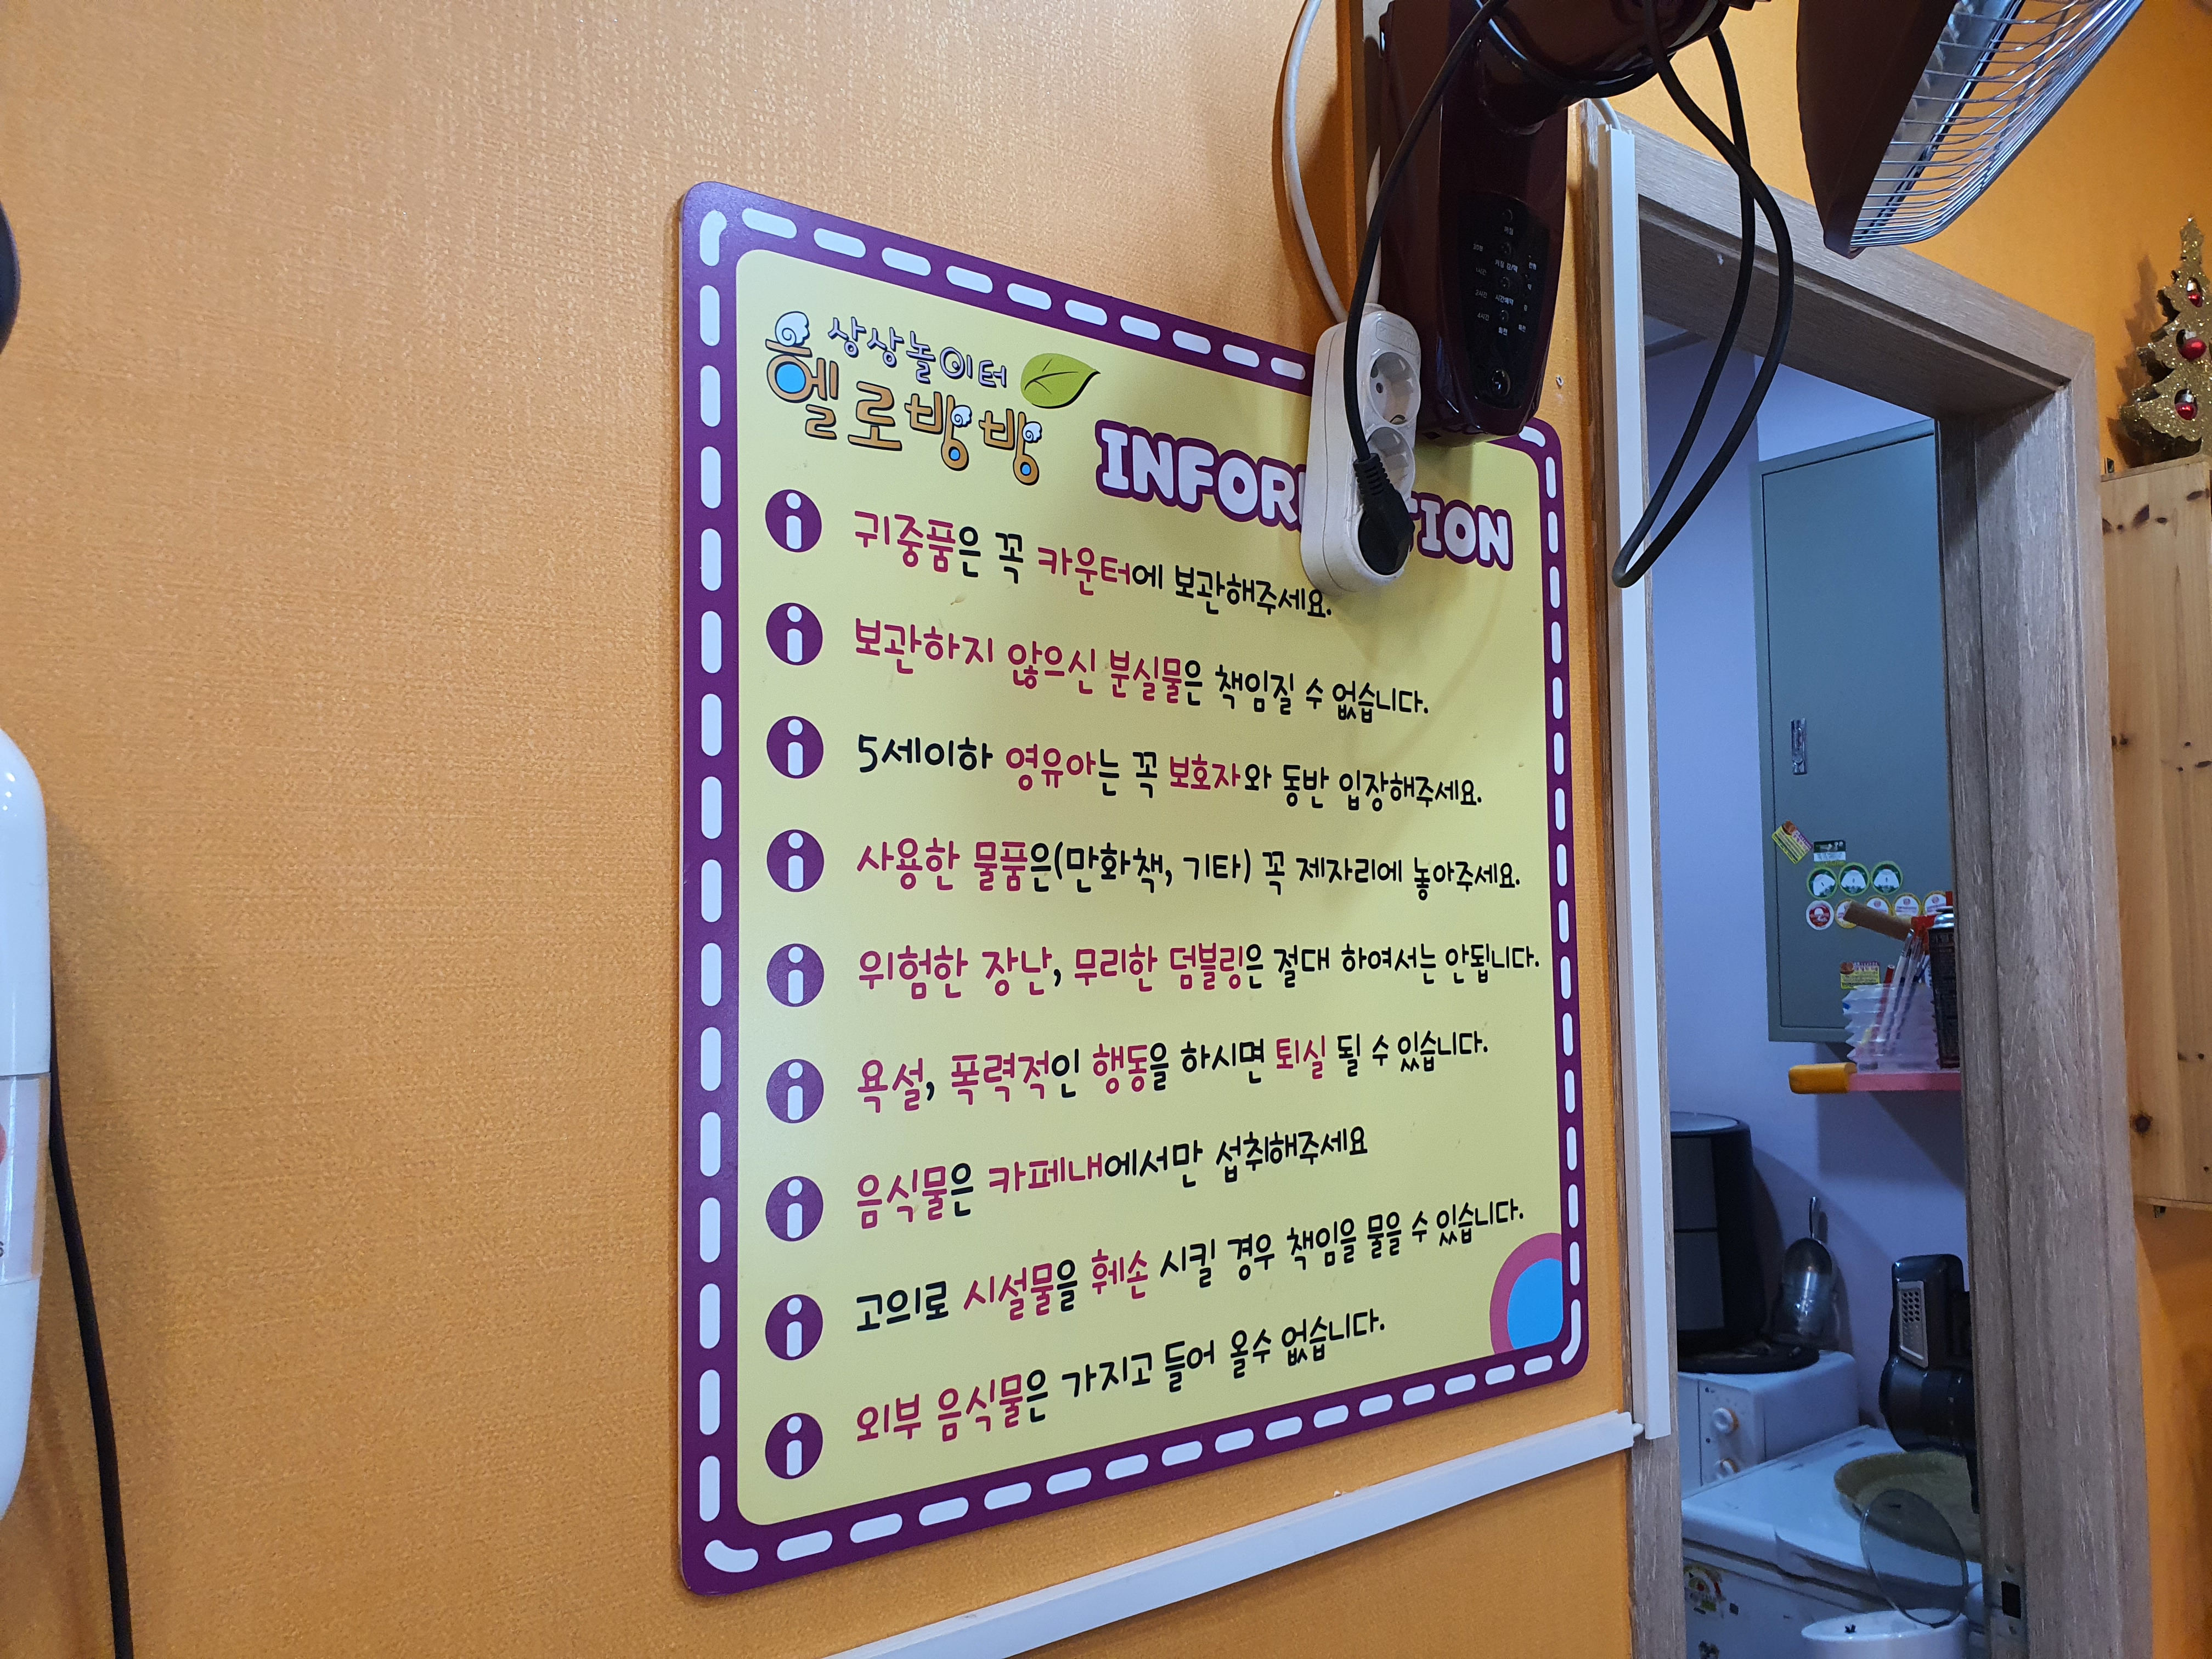 상상놀이터
헬로방방
INFORMATION
귀중품은 꼭 카운터에 보관해주세요.
보관하지 않으신 분실물은 책임질 수 없습니다.
5세이하 영유아는 꼭 보호자와 동반 입장해주세요.
사용한 물품은(만화책, 기타) 꼭 제자리에 놓아주세요.
위험한 장난, 무리한 덤블링은 절대 하여서는 안됩니다.
욕설, 폭력적인 행동을 하시면 퇴실 될 수 있습니다.
음식물은 카페내에서만 섭취해주세요
고의로 시설물을 훼손 시킬 경우 책임을 물을 수 있습니다.
외부 음식물은 가지고 들어 올수 없습니다.